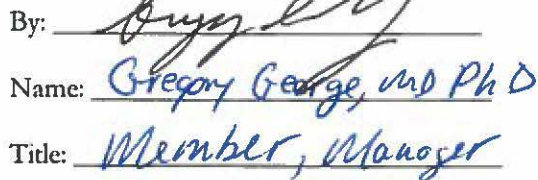 By:
Name: Gregory George, MD PhD
Title: Member, Manager